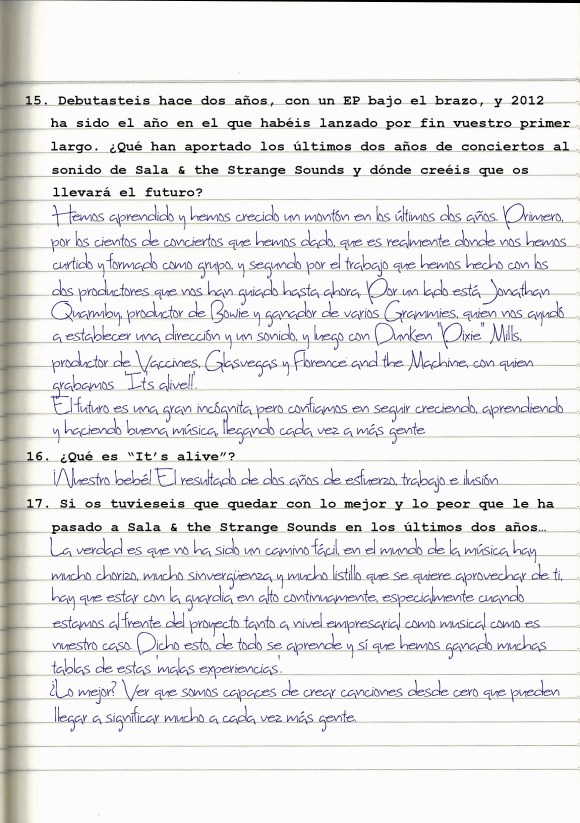 15. Debutasteis hace dos años, con un EP bajo el brazo, y 2012
ha sido el año en el que habéis lanzado por fin vuestro primer
largo. ¿Qué han aportado los últimos dos años de conciertos al
sonido de Sala & the Strange Sounds y dónde creéis que os
llevará el futuro?
Hemos aprendido y hemos crecido un montón en los últimos dos años. Primero,
por los cientos de conciertos que hemos dado, que es realmente donde nos hemos
curtido y formado como grupo, y segundo por el trabajo que hemos hecho con los
dos productores que nos han guiado hasta ahora. Por un lado está Jonathan
Quarmby, productor de Bowie y ganador de varios Grammies, quien nos ayudó
a establecer una dirección y un sonido, y luego con Dunken "Pixie" Mills,
productor de Vaccines, Glasvegas y Florence and the Machine, con quien
grabamos 'Its alive!!'.
'El futuro es una gran incógnita pero confiamos en seguir creciendo, aprendiendo
y haciendo buena música, llegando cada vez a más gente
16. ¿Qué es "It's alive"?
¡Nuestro bebé! El resultado de dos años de esfuerzo, trabajo e ilusión
17. Si os tuvieseis que quedar con lo mejor y lo peor que le ha
pasado a Sala & the Strange Sounds en los últimos dos años…
La verdad es que no ha sido un camino fácil, en el mundo de la música hay
mucho chorizo, mucho sinvergüenza y mucho listillo que se quiere aprovechar de ti,
hay que estar con la guardia en alto continuamente, especialmente cuando
estamos al frente del proyecto tanto a nivel empresarial como musical como es
nuestro caso. Dicho esto, de todo se aprende y sí que hemos ganado muchas
tablas de estas 'malas experiencias'.
¿Lo mejor? Ver que somos capaces de crear canciones desde cero que pueden
llegar a significar mucho a cada vez más gente.